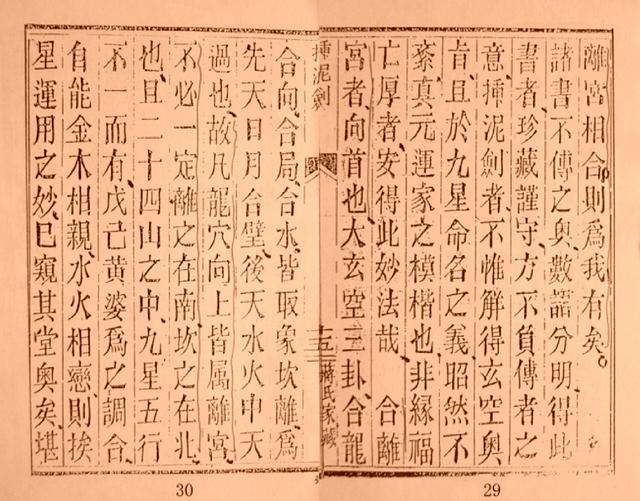 離宮相合則爲我有矣
諸書不傳之奧數語分明得此
書者珍藏謹守方不負傳者之
意揷泥劍者不惟解得玄空奧
旨且於九星命名之義昭然不
紊真元運家之模楷也非緣福
亡厚者安得此妙法哉 合離
宮者向首也大玄空三卦合龍
揷泥劍
十五
蔣氏家藏
合向合局合水皆取象坎離爲
先天日月合璧後天水火中天
過也故凡龍穴向上皆属離宮
不必一定離之在南坎之在北
也且二十四山之中九星五行
不一而有戊己黃婆爲之調合
自能金木相親水火相戀則挨
星運用之妙巳窺其堂奧矣堪
29
30